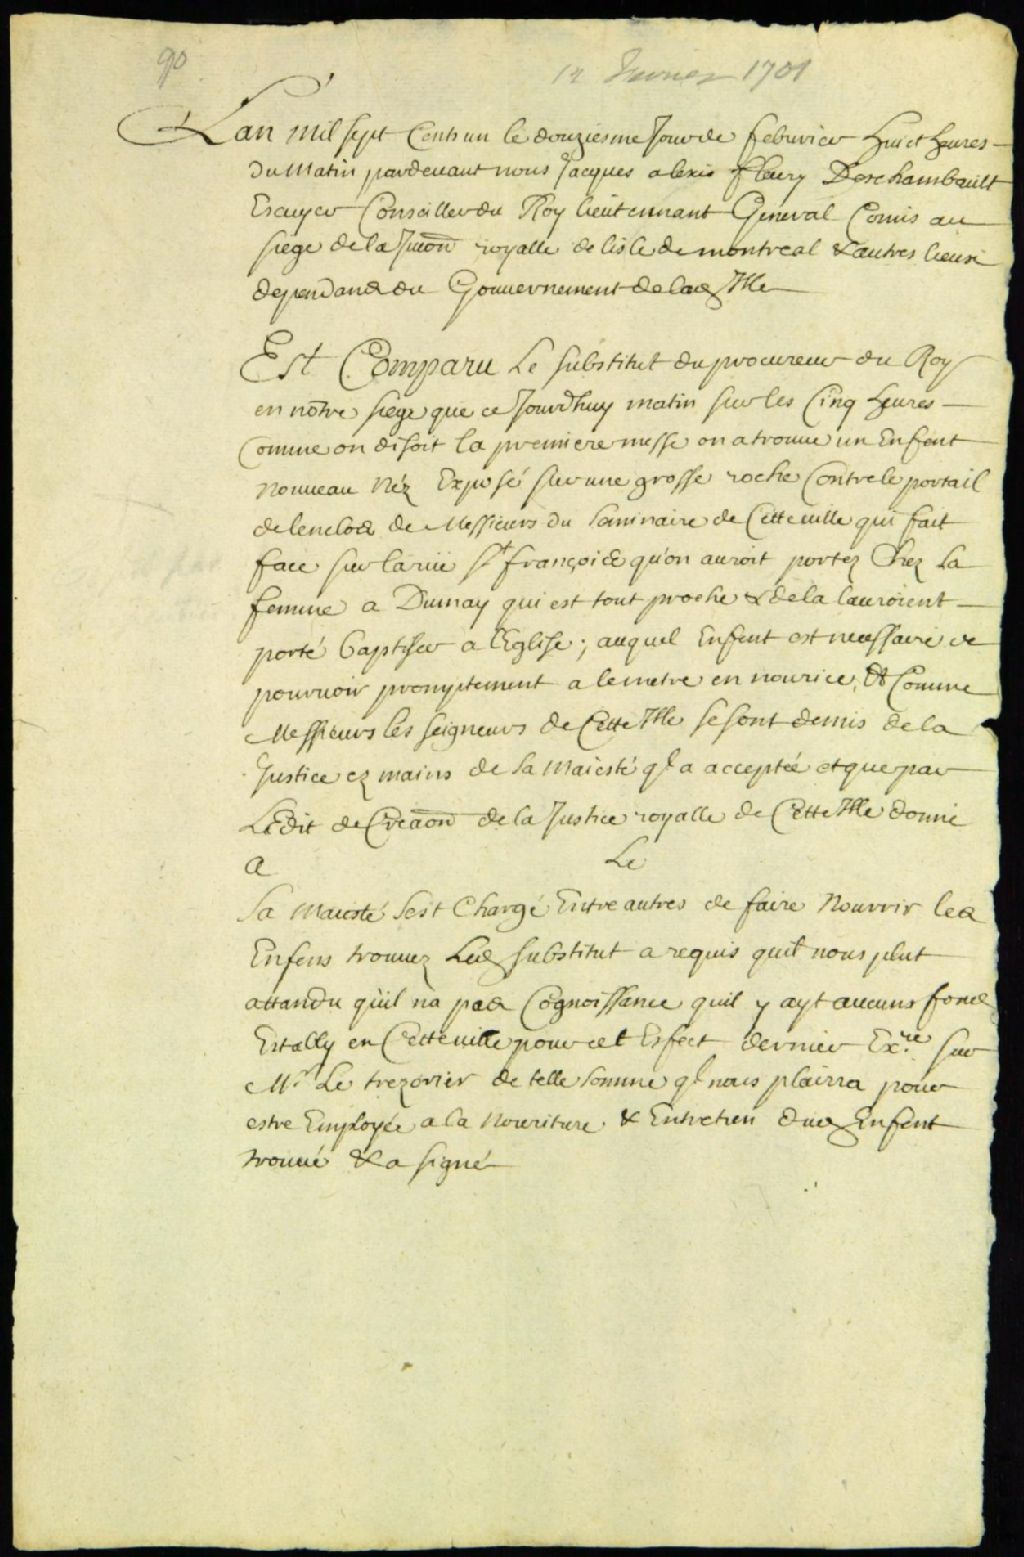 90
12 fevrier 1701
Lan Mil sept Cents un le douziesme Jour de febvrier huict heures
du Matin pardevant nous Jacques alexis fleury Deschambault
Escuyer Conseiller du Roy lieutennant General Comis au
siege de la Juon̄ royalle de lisle de montreal & autres lieux
dependans du Gouvernement de lad Isle
Est Comparu Le substitut du procureur du Roy
en nōtre siege que ce Jourdhuy matin sur les Cinq heures
Comme on disoit la premiere messe on a trouué un Enfent
nouueau Néz Exposé sur une grosse roche Contre le portail
de lenclos de Messieurs du Seminaire de Cette uille qui fait
face sur la rüe St françois qu'on auroit portez Chez La
femme a Dumay qui est tout proche & de la lauroient
porté baptiser a l'Eglise; auquel Enfent est necessaire de
pouruoir promptement a le metre en nourice, Et Comme
Messieurs les seigneurs de Cette Isle se sont demis de la
Justice ez mains de sa Maiesté ql a acceptée et que par
LEdit de Creaon̄ de la Justice royalle de Cette Isle donné
a Le
Sa Maiesté sest Chargé Entre autres de faire Nourrir les
Enfens trouuez Led substitut a requis quil nous plut
attandu quil n'a pas Cognoissance quil y ayt aucuns fonds
Estably en Cette uille pour cet Esfect dernier Exre sur
Mr Le trezorier de telle somme ql nous plairra pour
estre Employée a la Nouriture & Entretien dud Enfent
trouué & a signé